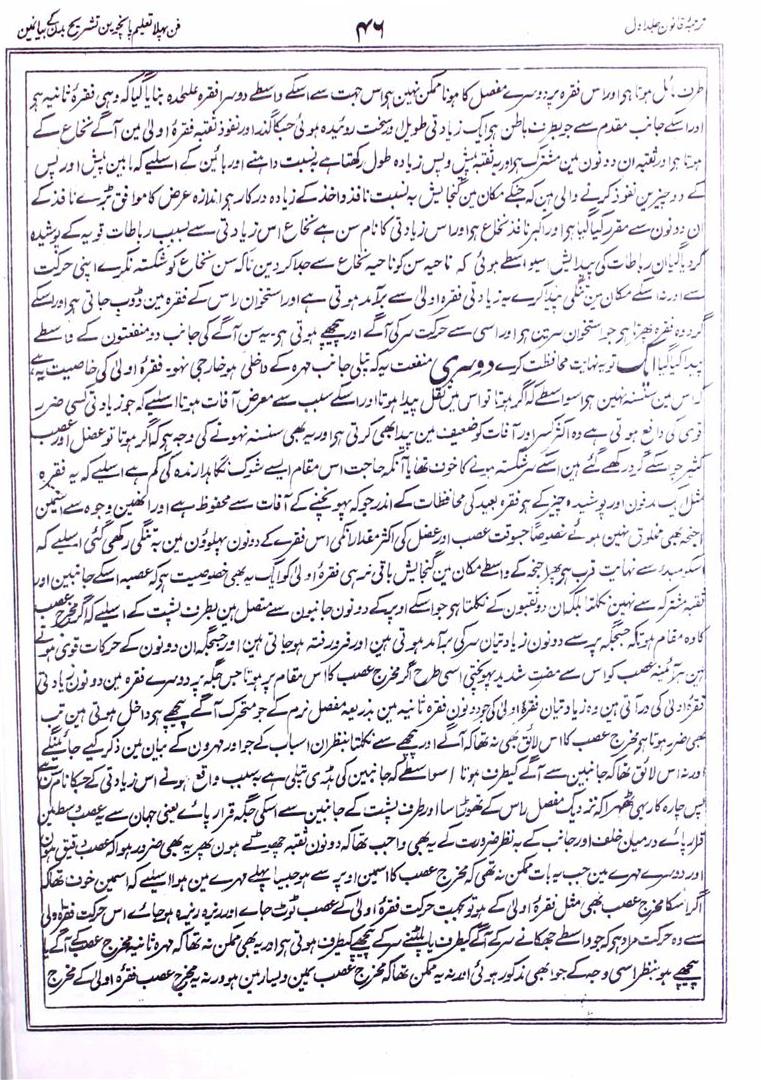 ترجمۂ قانون جلد اول ۴۶ فن پہلا تعلیم پانچوین تشریح بدن کے بیانمین
طرف مائل ہوتا ہو اور اس فقرہ پر دوسرے مفصل کا ہونا ممکن نہین ہو اس جہت سے اسکے واسطے دوسرا فقرہ علیحدہ بنایا گیا کہ وہی فقرۂ ثانیہ ہو
اور اسکے جانب مقدم سے جو بطرف باطن ہو ایک زیادتی طویل و سخت روئیدہ ہوئی جسکا گذر اور نفوذ ثقبہ فقرۂ اولی مین آگے نخاع کے
ہوتا ہو اور ثقبہ ان دونون مین مشترک ہو اور یہ ثقبہ پیش و پس زیادہ طول رکھتا ہے بنسبت داہنے اور بائین کے اسلیے کہ مابین پیش اور پس
کے دو چیزین نفوذ کرنے والی ہین کہ جنکے مکان مین گنجایش بہ نسبت نافذ واحد کے زیادہ درکار ہو اندازہ عرض کا موافق بڑے نافذ کے
ان دونون سے مقرر کیا گیا ہو اور اکبر نافذ نخاع ہو اور اس زیادتی کا نام سن ہے نخاع اس زیادتی سے بسبب رباطات قویہ کے پوشیدہ
کر دیا گیا ان رباطات کی پیدایش اسیواسطے ہوئی کہ ناحیہ سن کو ناحیہ نخاع سے جدا کر دین تاکہ سن نخاع کو شکستہ نکرے اپنی حرکت
سے اور نہ اسکے مکان مین تنگی پیدا کرے یہ زیادتی فقرہ اولی سے برآمد ہوتی ہے اور استخوان راس کے فقرہ مین ڈوب جاتی ہو اور اسکے
گرد وہ فقرہ پھرتا ہو جو استخوان سر مین ہو اور اسی سے حرکت سر کی آگے اور پیچھے ہوتی ہو یہ سن آگے کی جانب دو منفعتون کے واسطے
پیدا کیا گیا ایک تو یہ نہایت محافظت کرے دوسری منفعت یہ کہ پتلی جانب مہرہ کے داخلی ہو خارجی نہو فقرۂ اولی کی خاصیت یہ ہے
کہ اس مین سنسنہ نہین ہو اسواسطے کہ اگر ہوتا تو اس مین ثقل پیدا ہوتا اور اسکے سبب سے معرض آفات ہوتا اسلیے کہ جو زیادتی کسی ضرر
قوی کی دافع ہوتی ہے وہ اکثر کسر اور آفات کو ضعیف مین پیدا بھی کرتی ہو اور یہ بھی سنسنہ نہونے کی وجہ ہو کہ اگر ہوتا تو عضل اور عصب
کثیر جو اسکے گرد رکھے گئے ہین اسکے سر شکستہ ہونے کا خوف تھا با آنکہ حاجت اس مقام ایسے شوک نگاہدارندہ کی کم ہے اسلیے کہ یہ فقرہ
مثل مدفون اور پوشیدہ چیز کے ہو فقرہ بعید کی محافظات کے اندر جو کہ پہونچنے کے آفات سے محفوظ ہے اور انھین وجوہ سے اسمین
اجنحہ بھی مخلوق نہین ہوئے خصوصاً جبوقت عصب اور عضل کی اکثر مقدار اسکی اس فقرے کے دونون پہلوؤن مین بہ تنگی رکھی گئی اسلیے کہ
اسکو مبدء سے نہایت قرب ہو پھر اجنحہ کے واسطے مکان مین گنجایش باقی نرہی فقرۂ اولی کو ایک یہ بھی خصوصیت ہو کہ عصبہ اسکے جانبین اور
ثقبہ مشترکہ سے نہین نکلتا بلکہ ان دو ثقبون کے نکلتا ہو جو اسکے اوپر کے دونون جانبون سے متصل ہین بطرف پشت کے اسلیے کہ اگر مخرج عصب
کا وہ مقام ہوتا کہ جسجگہ پر سے دونون زیادتیان سر کی برآمد ہوتی ہین اور فرو رفتہ ہو جاتی ہین اور جسجگہ ان دونون کے حرکات قوی ہوتے
ہین ہر آئینہ عصب کو اس سے مضرت شدید پہونچتی اسی طرح اگر مخرج عصب کا اس مقام پر ہوتا جس جگہ پر دوسرے فقرہ مین دونون زیادتی
فقرۂ اولی کی در آتی ہین وہ زیادتیان فقرۂ اولی کی جو دونون فقرۂ ثانیہ مین بذریعہ مفصل نرم کے جو متحرک آگے پیچھے ہو داخل ہوتی ہین تب
بھی ضرر ہوتا ہو مخرج عصب کا اس لائق بھی نہ تھا کہ آگے اور پیچھے سے نکلتا بنظر ان اسباب کے جو اور مہرون کے بیان مین ذکر کیے جائینگے
اور نہ اس لائق تھا کہ جانبین سے آگے کیطرف ہوتا اسواسطے کہ جانبین کی ہڈی پتلی ہے بسبب واقع ہونے اس زیادتی کے جسکا نام سن ہے
پس چارہ کار یہی ٹھہرا کہ نزدیک مفصل راس کے تھوڑا سا اور طرف پشت کے جانبین سے اسکی جگہ قرار پائے یعنی جہان سے یہ عصب وسط مین
قرار پائے درمیان خلف اور جانب کے بہ نظر ضرورت کے یہ بھی واجب تھا کہ دونون ثقبہ چھوٹے ہون پھر یہ بھی ضرور ہوا کہ عصب دقیق ہون
اور دوسرے مہرے مین جب یہ بات ممکن نہ تھی کہ مخرج عصب کا اسمین اوپر سے ہو جیسا پہلے مہرے مین ہوا اسلیے کہ اسمین خوف تھا کہ
اگر اسکا مخرج عصب بھی مثل فقرۂ اولی کے ہو تو بجہت حرکت فقرۂ اولی کے عصب ٹوٹ جائے اور ریزہ ریزہ ہو جائے اس حرکت فقرۂ اولی
سے وہ حرکت مراد ہو کہ جو واسطے جھکانے سر کے آگے کیطرف یا پلٹنے سر کے پیچھے کیطرف ہوتی ہو اور یہ بھی ممکن نہ تھا کہ مہرہ ثانیہ مخرج عصب کے آگے یا
پیچھے ہو بنظر اسی وجہ کے جو ابھی مذکور ہوئی اور نہ یہ ممکن تھا کہ مخرج عصب یمین و یسار مین ہو ورنہ یہ مخرج عصب فقرۂ اولی کے مخرج